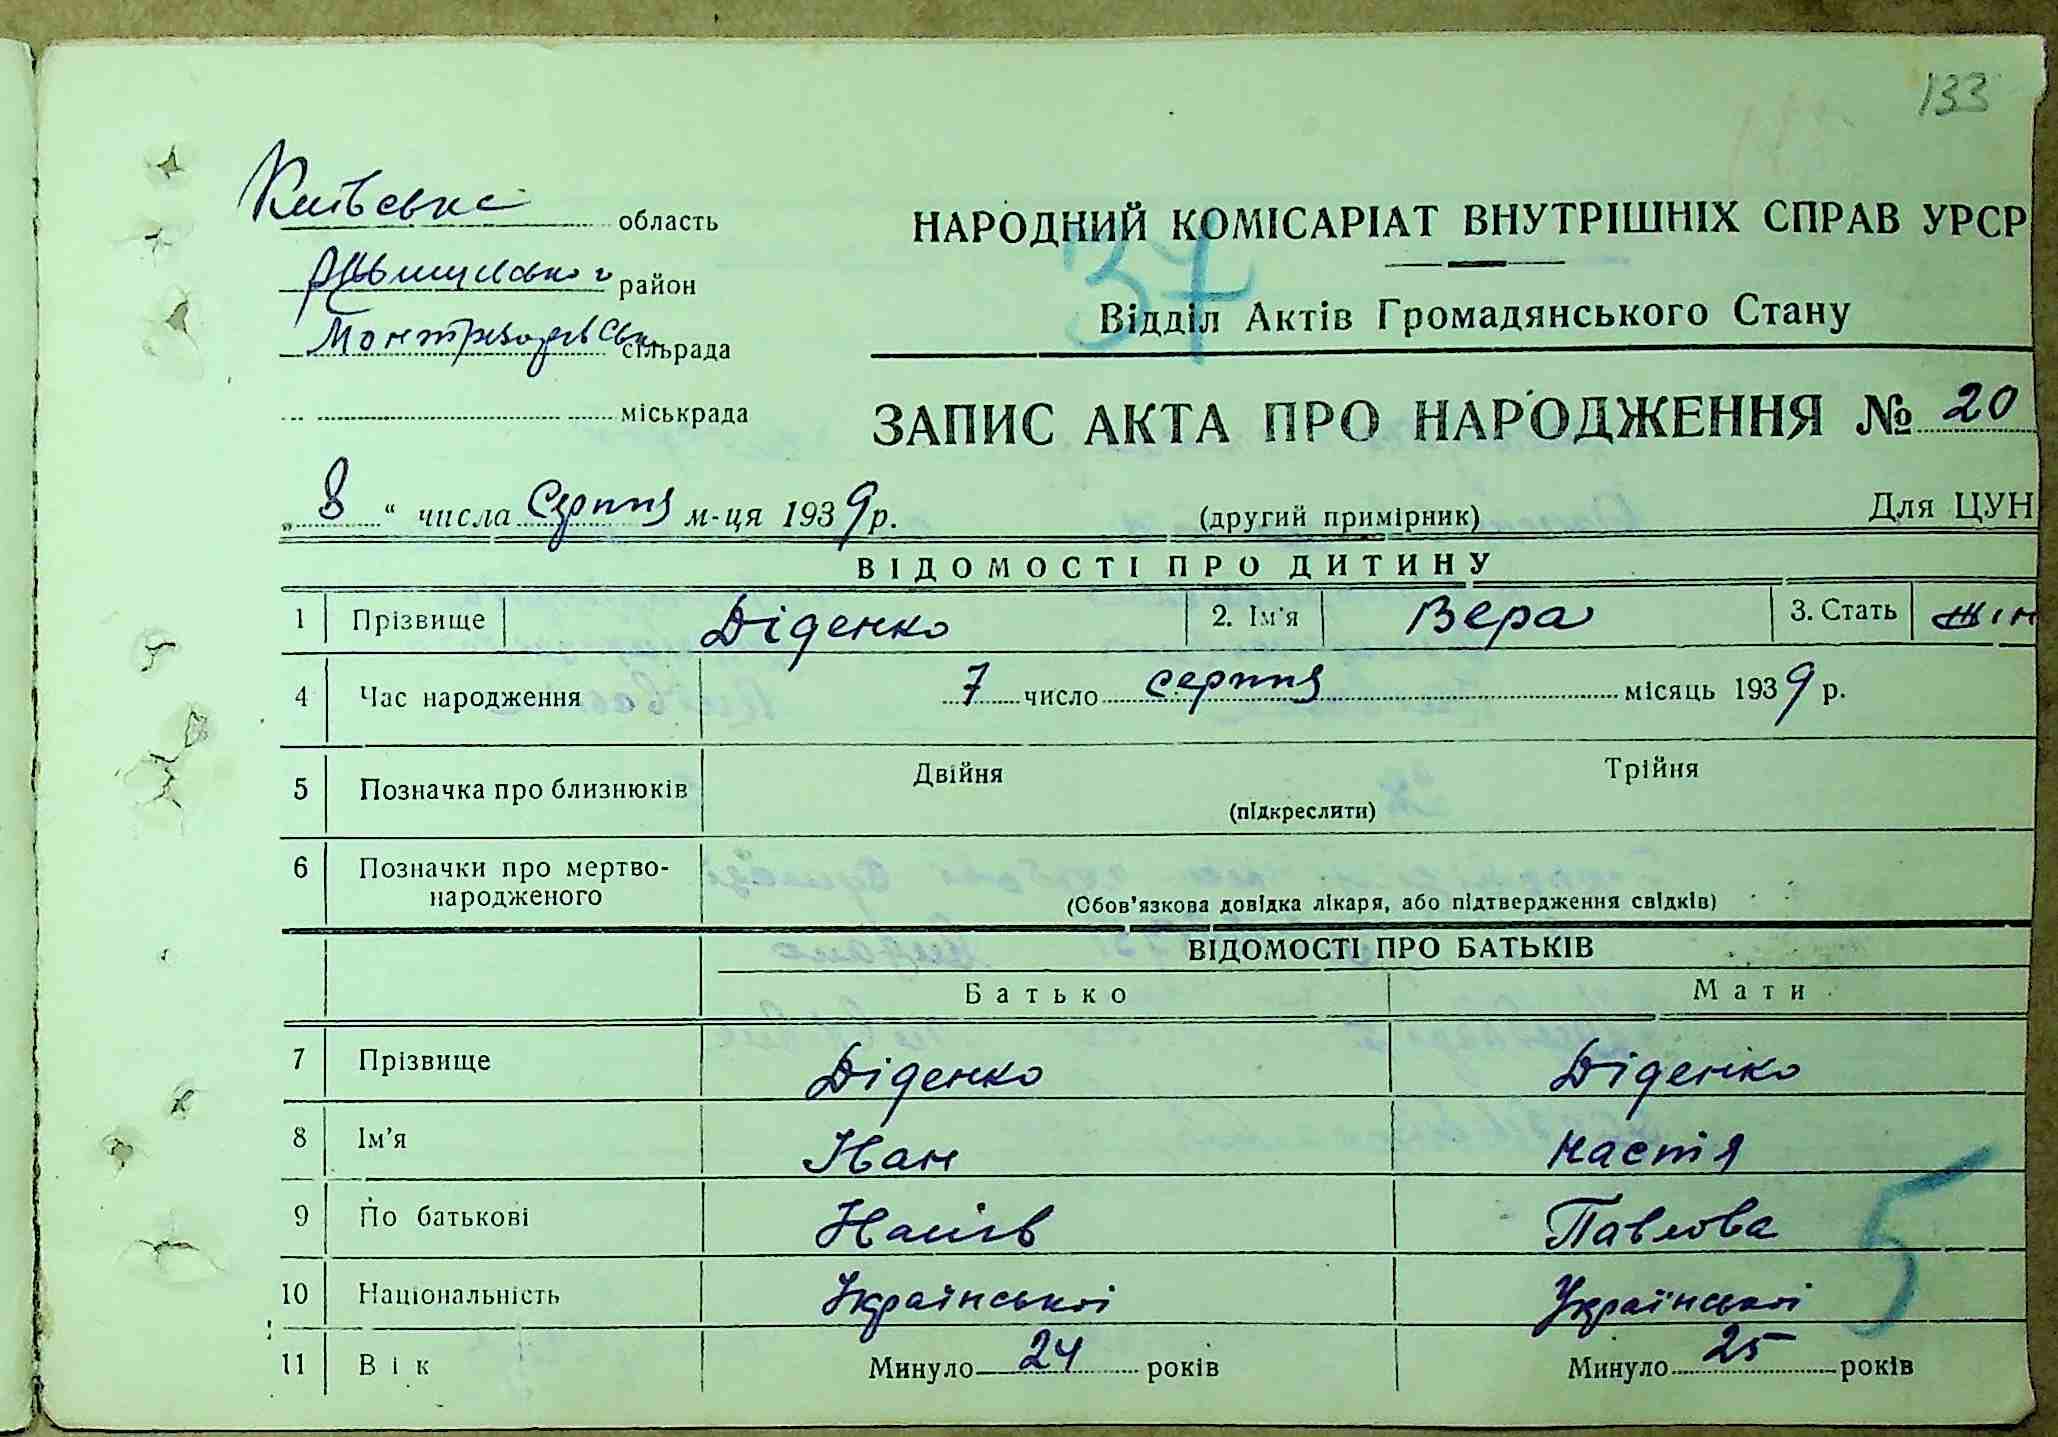 133
Київська область
НАРОДНИЙ КОМІСАРІАТ ВНУТРІШНІХ СПРАВ УРСР
37
район
Відділ Актів Громадянського Стану
сільрада
міськрада
ЗАПИС АКТА ПРО НАРОДЖЕННЯ № 20
„ 8 “ числа Серпня м-ця 1939 р.
(другий примірник)
Для ЦУН
ВІДОМОСТІ ПРО ДИТИНУ
1 Прізвище Діденко 2. Ім'я Вера 3. Стать жін
4 Час народження 7 число серпня місяць 1939 р.
5 Позначка про близнюків Двійня Трійня
(підкреслити)
6 Позначки про мертво-
народженого
(Обов'язкова довідка лікаря, або підтвердження свідків)
ВІДОМОСТІ ПРО БАТЬКІВ
Батько Мати
7 Прізвище Діденко Діденко
8 Ім'я Іван настя
9 По батькові Павлова
10 Національність Української Української
5
11 Вік Минуло 24 років Минуло 25 років